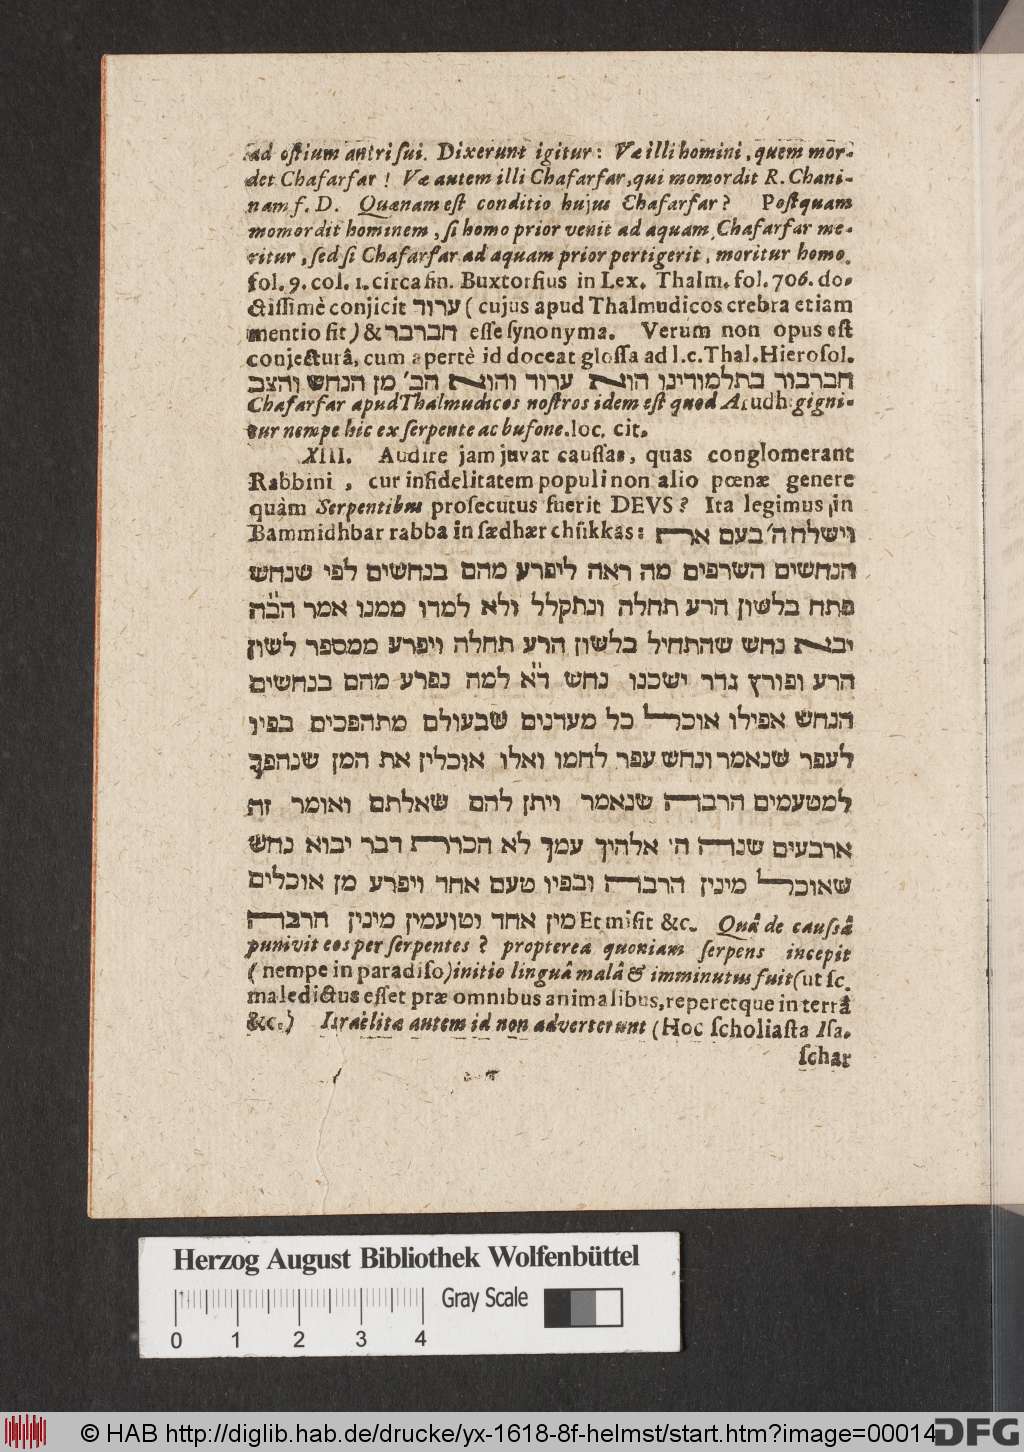 ad ostium antri sui. Dixerunt igitur: Væ illi homini, quem mor-
det Chafarfar! Væ autem illi Chafarfar, qui momordit R. Chani-
nam f. D. Quænam est conditio hujus Chafarfar? Postquam
momordit hominem, si homo prior venit ad aquam, Chafarfar mo-
ritur, sed si Chafarfar ad aquam prior pertigerit, moritur homo.
fol. 9. col. 1. circa fin. Buxtorfius in Lex. Thalm. fol. 706. do-
ctissimè conjicit ערוד (cujus apud Thalmudicos crebra etiam
mentio fit) & חברבר esse synonyma. Verum non opus est
conjecturâ, cum apertè id doceat glossa ad l.c. Thal. Hierosol.
חברבור בתלמודינו הוא ערוד והוא הב׳ מן הנחש והצב
Chafarfar apud Thalmudicos nostros idem est quod Arudh: gigni-
tur nempe hic ex serpente ac bufone. loc. cit.
XIII. Audire jam juvat caussas, quas conglomerant
Rabbini, cur infidelitatem populi non alio pœnæ genere
quàm Serpentibus prosecutus fuerit DEVS? Ita legimus in
Bammidhbar rabba in sædhær chükkas: וישלח ה׳ בעם את
הנחשים השרפים מה ראה ליפרע מהם בנחשים לפי שנחש
פתח בלשון הרע תחלה ונתקלל ולא למדו ממנו אמר הב״ה
יבא נחש שהתחיל בלשון הרע תחלה ויפרע ממספר לשון
הרע ופורץ גדר ישכנו נחש ד״א למה נפרע מהם בנחשים
הנחש אפילו אוכל כל מעדנים שבעולם מתהפכים בפיו
לעפר שנאמר ונחש עפר לחמו ואלו אוכלין את המן שנהפך
למטעמים הרבה שנאמר ויתן להם שאלתם ואומר זה
ארבעים שנה ה׳ אלהיך עמך לא חסרת דבר יבוא נחש
שאוכל מינין הרבה ובפיו טעם אחד ויפרע מן אוכלים
מין אחד וטועמין מינין הרבה Et misit &c. Quâ de caussâ
punivit eos per serpentes? propterea quoniam serpens incepit
(nempe in paradiso) initio linguâ malâ & imminutus fuit (ut sc.
maledictus esset præ omnibus animalibus, reperetque in terrâ
&c.) Israëlitæ autem id non adverterunt (Hoc scholiasta Isa-
schar
Herzog August Bibliothek Wolfenbüttel
Gray Scale
0 1 2 3 4
© HAB http://diglib.hab.de/drucke/yx-1618-8f-helmst/start.htm?image=00014
DFG